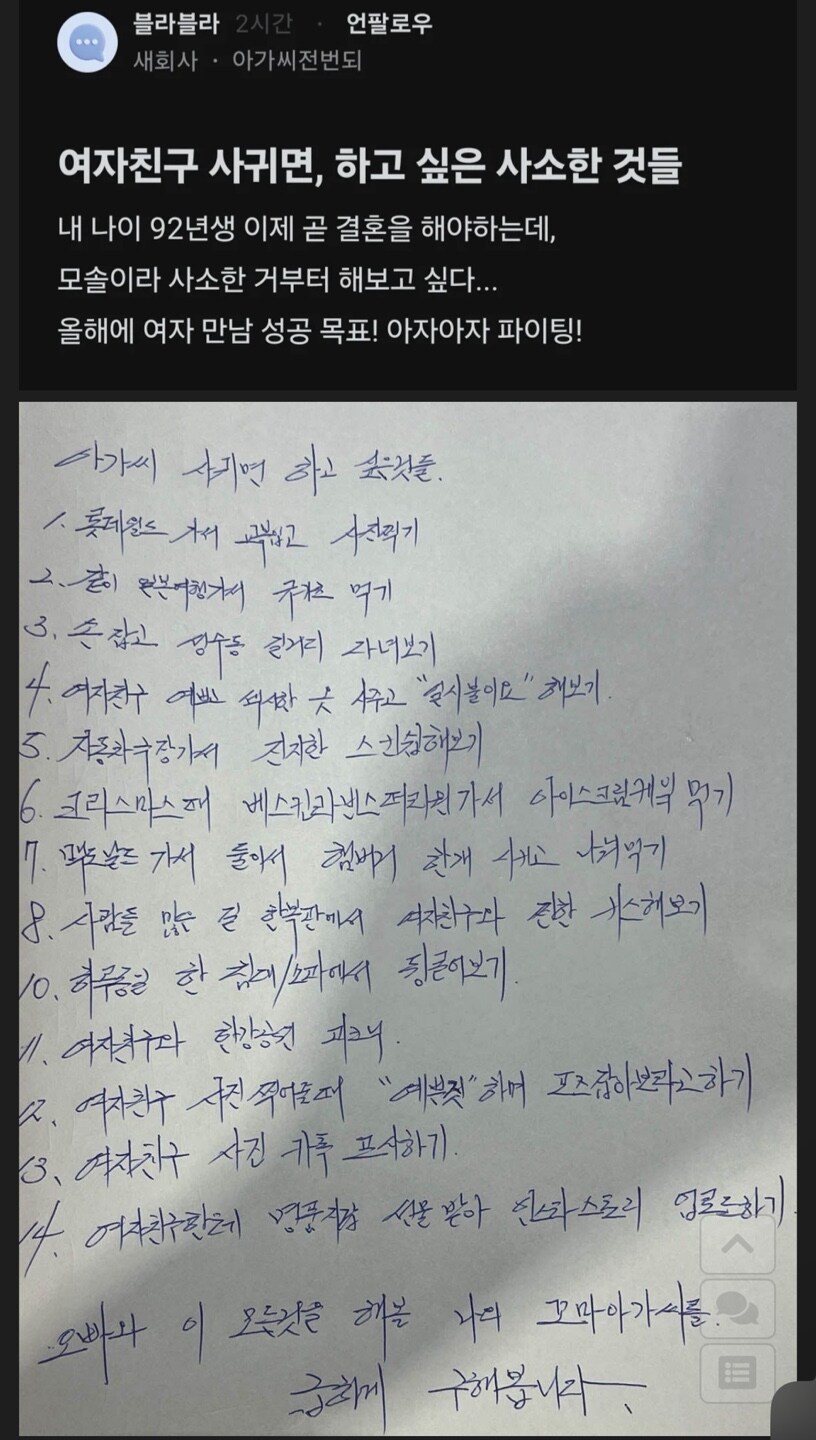 블라블라 2시간 · 언팔로우
새회사 · 아가씨전번되
여자친구 사귀면, 하고 싶은 사소한 것들
내 나이 92년생 이제 곧 결혼을 해야하는데,
모솔이라 사소한 거부터 해보고 싶다...
올해에 여자 만남 성공 목표! 아자아자 파이팅!
아가씨 사귀면 하고 싶은것들.
1. 롯데월드 가서 교복입고 사진찍기
2. 같이 일본여행가서 규카츠 먹기
3. 손 잡고 성수동 길거리 다녀보기
4. 여자친구 예쁘고 섹시한 옷 사주고 "일시불이요" 해보기.
5. 자동차극장가서 진지한 스킨쉽해보기
6. 크리스마스때 베스킨라빈스 데리고가서 아이스크림케익 먹기
7. 맥도날드 가서 둘이서 햄버거 한개 시키고 나눠먹기
8. 사람들 많은 길 한복판에서 여자친구와 진한 키스해보기
10. 하루종일 한 침대/소파에서 뒹굴어보기.
11. 여자친구와 한강공원 피크닉.
12. 여자친구 사진 찍어줄때 "예쁜짓" 하며 포즈잡아보라고하기
13. 여자친구 사진 카톡 프사하기.
14. 여자친구한테 명품지갑 선물 받아 인스타스토리 업로드하기.
오빠와 이 모든것을 해볼 나의 꼬마아가씨를.
급하게 구해봅니다